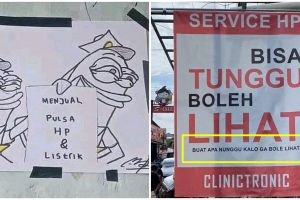 MENJUAL
PULSA
HP
&
LISTRIK
SERVICE HP
BISA
TUNGGU
BOLEH
LIHAT
BUAT APA NUNGGU KALO GA BOLE LIHAT
CLINICTRONIC